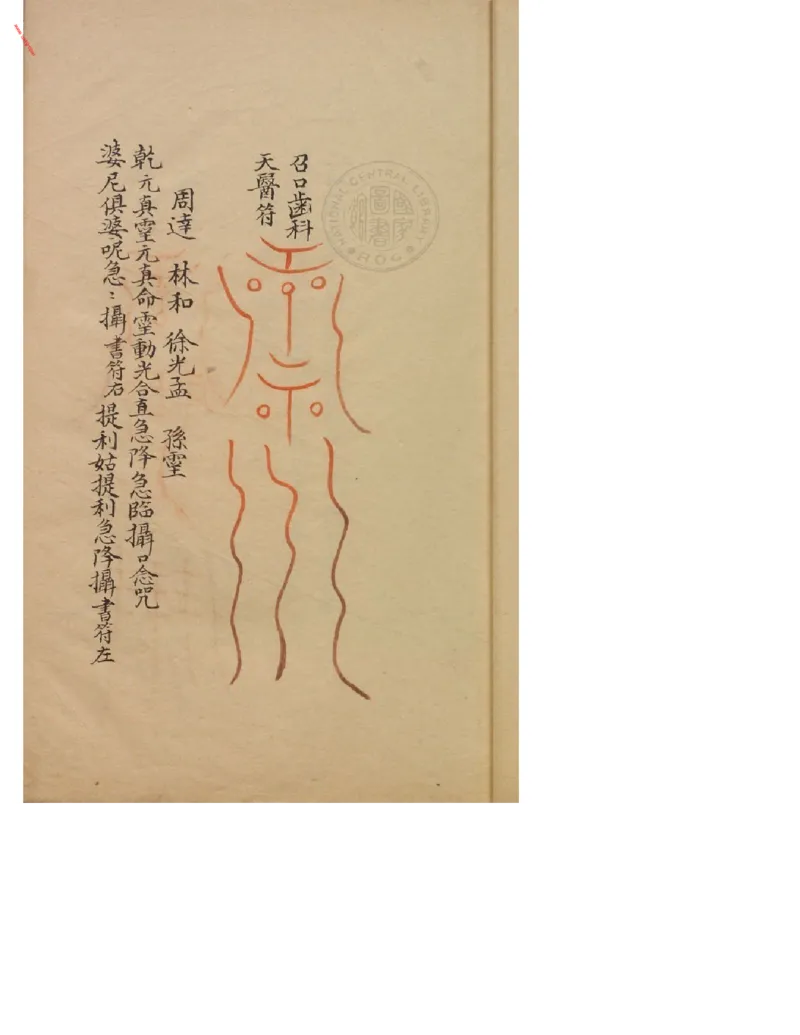 召口歯科
天醫符
周達 林和 徐光孟 孫霊
乾元真霊元真命霊動光合直急降急臨攝口念咒
婆尼俱婆呢急〻攝書符右提利姑提利急降攝書符左
NATIONAL CENTRAL LIBRARY
ROC
國家圖書館